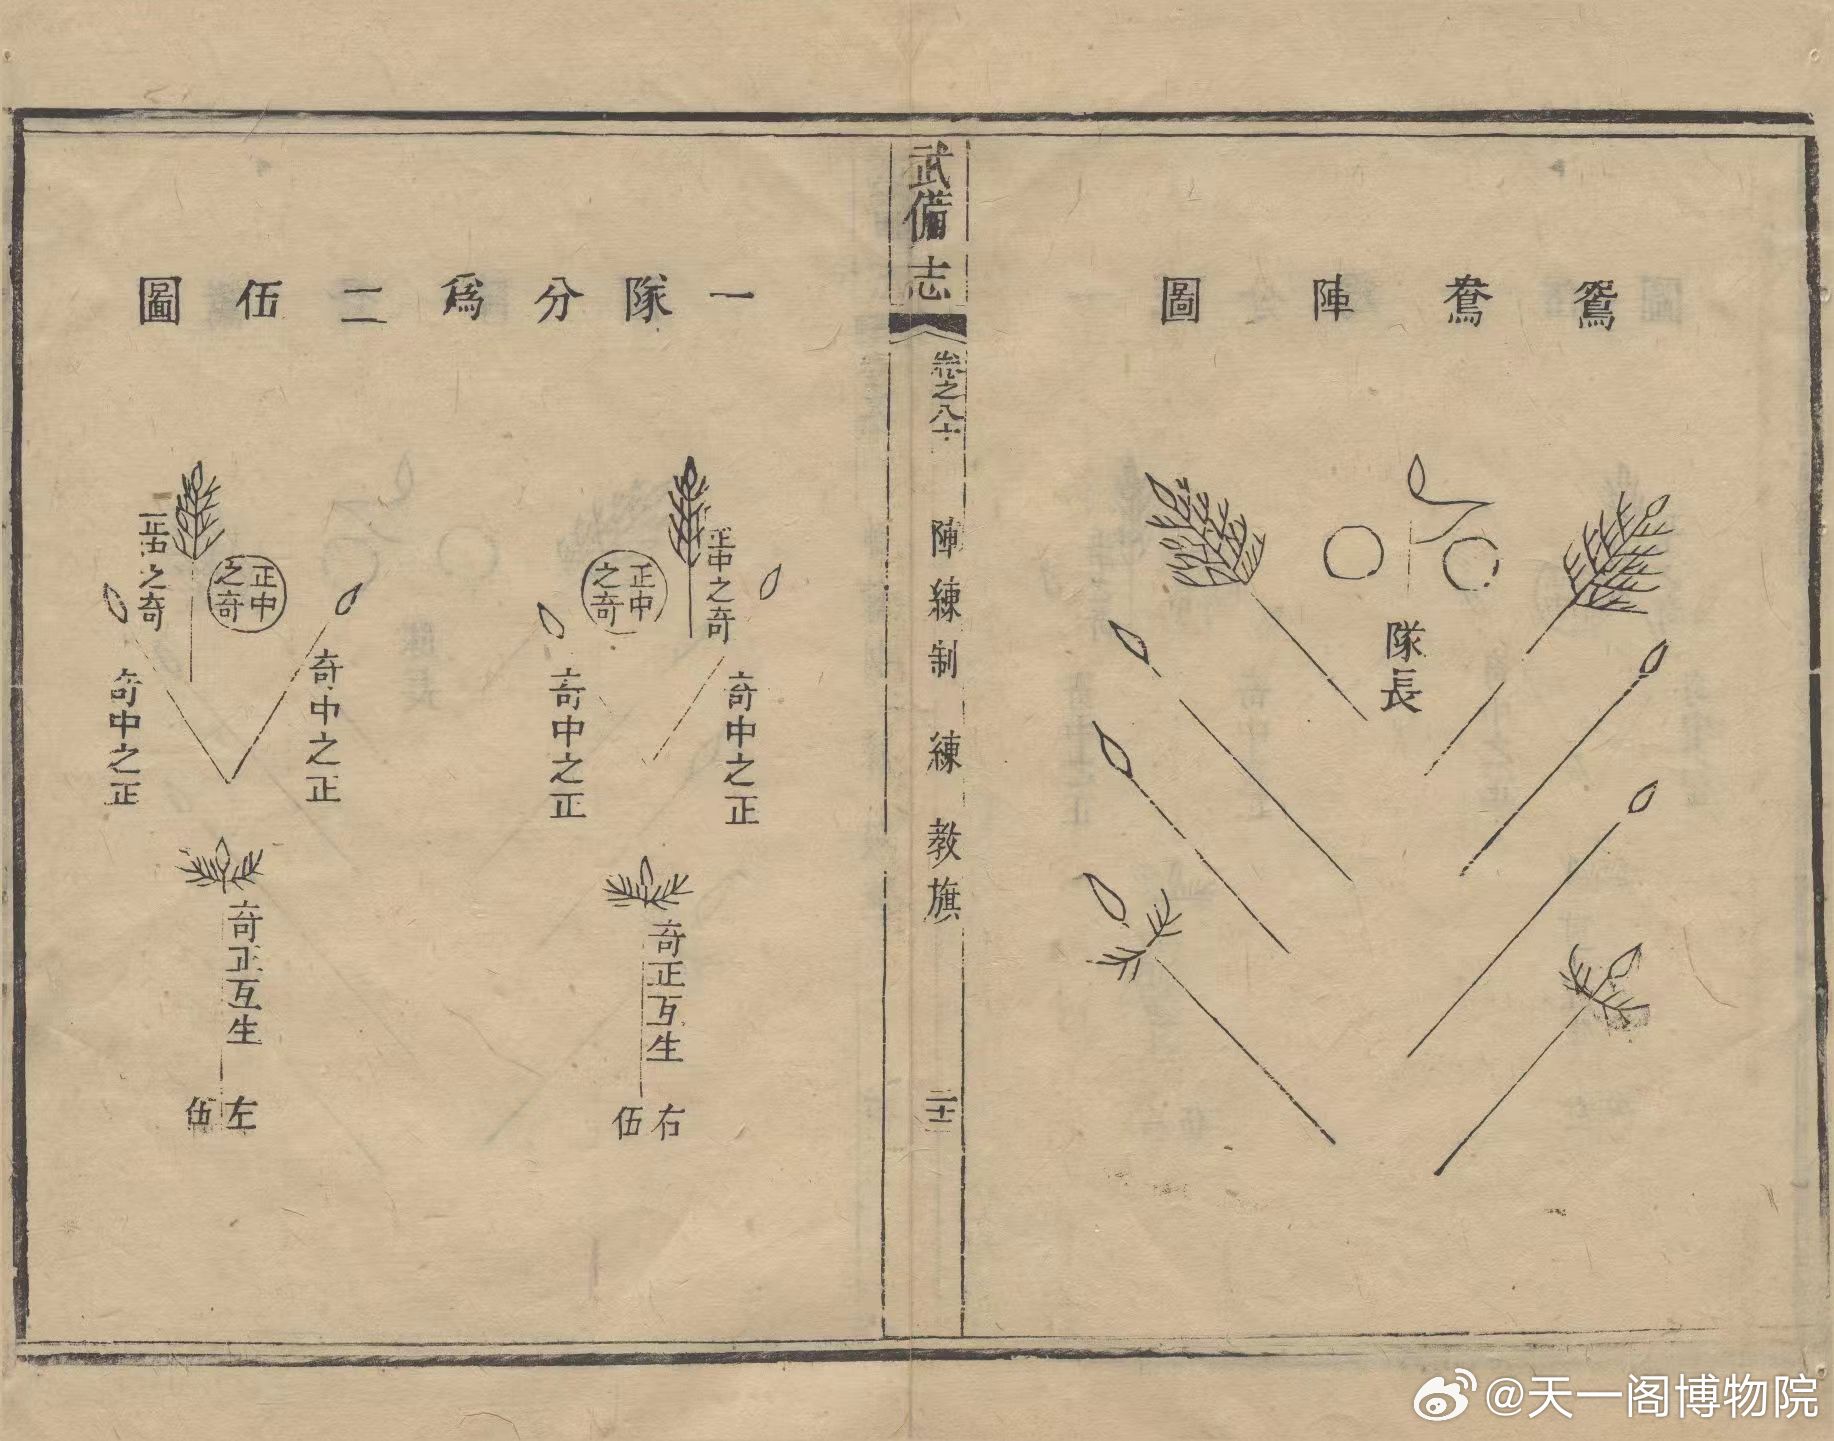 鴛鴦陣圖
隊長
武備志
卷之八十
陣練制
練
教旗
二十二
一隊分爲二伍圖
正中之奇
正中之奇
奇中之正
奇中之正
奇正互生
右伍
正中之奇
正中之奇
奇中之正
奇中之正
奇正互生
左伍
@天一阁博物院